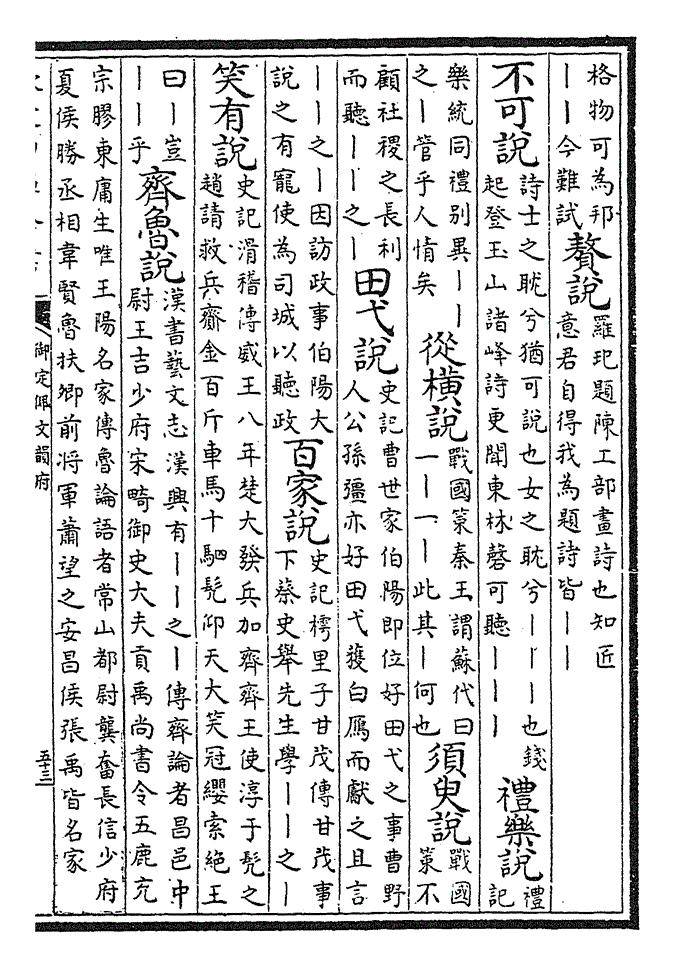 格物可為邦
｜｜今難試
贅說
羅玘題陳工部畫詩也知匠
意君自得我為題詩皆｜｜
不可說
詩士之耽兮猶可說也女之耽兮｜｜｜也錢
起登玉山諸峰詩更聞東林磬可聽｜｜｜
禮樂說
禮
記
樂統同禮別異｜｜
之｜管乎人情矣
從橫說
戰國策秦王謂蘇代曰
一｜一｜此其｜何也
須臾說
戰國
策不
顧社稷之長利
而聽｜｜之｜
田弋說
史記曹世家伯陽即位好田弋之事曹野
人公孫彊亦好田弋獲白鴈而獻之且言
｜｜之｜因訪政事伯陽大
說之有寵使為司城以聽政
百家說
史記樗里子甘茂傳甘茂事
下蔡史舉先生學｜｜之｜
笑有說
史記滑稽傳威王八年楚大發兵加齊齊王使淳于髡之
趙請救兵齎金百斤車馬十駟髡仰天大笑冠纓索絕王
曰｜豈
｜｜乎
齊魯說
漢書藝文志漢興有｜｜之｜傳齊論者昌邑中
尉王吉少府宋畸御史大夫貢禹尚書令五鹿充
宗膠東庸生唯王陽名家傳魯論語者常山都尉龔奮長信少府
夏侯勝丞相韋賢魯扶卿前將軍蕭望之安昌侯張禹皆名家
御定佩文韻府
五十三